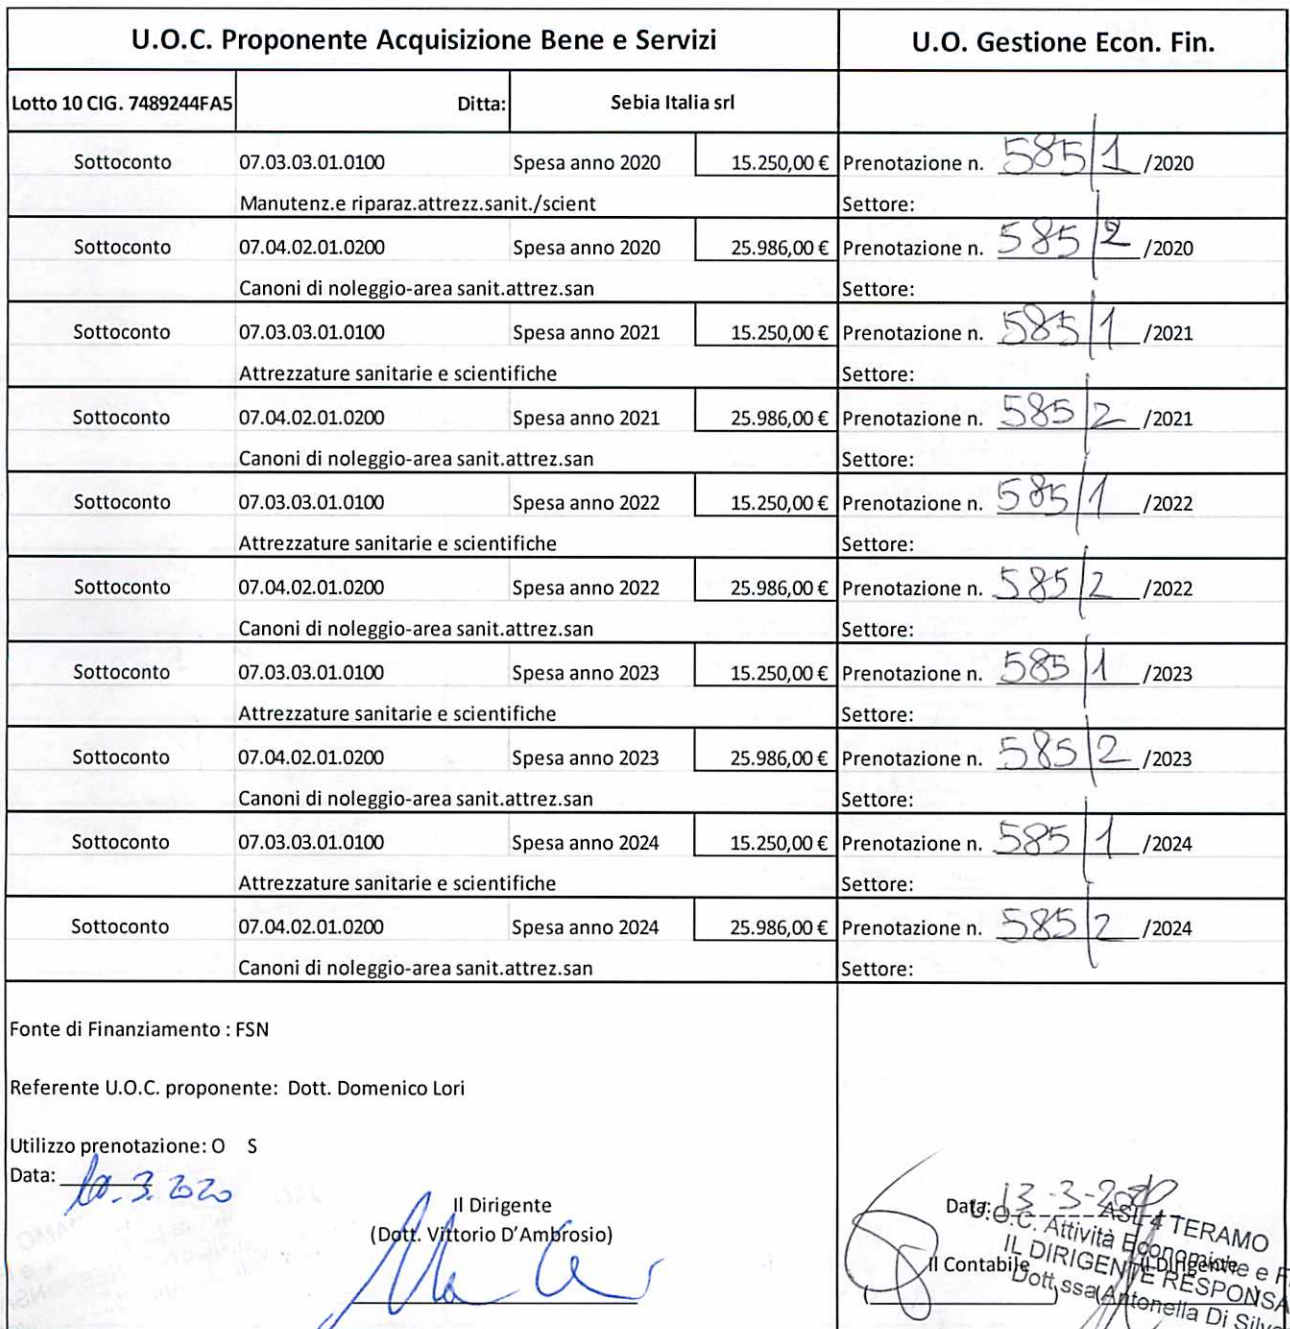 U.O.C. Proponente Acquisizione Bene e Servizi U.O. Gestione Econ. Fin.
Lotto 10 CIG. 7489244FA5 Ditta: Sebia Italia srl
Sottoconto 07.03.03.01.0100 Spesa anno 2020 15.250,00 € Prenotazione n. 585/1 /2020
Manutenz.e riparaz.attrezz.sanit./scient Settore:
Sottoconto 07.04.02.01.0200 Spesa anno 2020 25.986,00 € Prenotazione n. 585/2 /2020
Canoni di noleggio-area sanit.attrez.san Settore:
Sottoconto 07.03.03.01.0100 Spesa anno 2021 15.250,00 € Prenotazione n. 585/1 /2021
Attrezzature sanitarie e scientifiche Settore:
Sottoconto 07.04.02.01.0200 Spesa anno 2021 25.986,00 € Prenotazione n. 585/2 /2021
Canoni di noleggio-area sanit.attrez.san Settore:
Sottoconto 07.03.03.01.0100 Spesa anno 2022 15.250,00 € Prenotazione n. 585/1 /2022
Attrezzature sanitarie e scientifiche Settore:
Sottoconto 07.04.02.01.0200 Spesa anno 2022 25.986,00 € Prenotazione n. 585/2 /2022
Canoni di noleggio-area sanit.attrez.san Settore:
Sottoconto 07.03.03.01.0100 Spesa anno 2023 15.250,00 € Prenotazione n. 585/1 /2023
Attrezzature sanitarie e scientifiche Settore:
Sottoconto 07.04.02.01.0200 Spesa anno 2023 25.986,00 € Prenotazione n. 585/2 /2023
Canoni di noleggio-area sanit.attrez.san Settore:
Sottoconto 07.03.03.01.0100 Spesa anno 2024 15.250,00 € Prenotazione n. 585/1 /2024
Attrezzature sanitarie e scientifiche Settore:
Sottoconto 07.04.02.01.0200 Spesa anno 2024 25.986,00 € Prenotazione n. 585/2 /2024
Canoni di noleggio-area sanit.attrez.san Settore:
Fonte di Finanziamento : FSN
Referente U.O.C. proponente: Dott. Domenico Lori
Utilizzo prenotazione: O S
Data: 10.3.2020
Il Dirigente
(Dott. Vittorio D'Ambrosio)
Data: 13-3-2020
ASL 4 TERAMO
U.O.C. Attività Economiche e F
IL DIRIGENTE RESPONSA
Dott.ssa Antonella Di Silve
Il Contabile Il Dirigente